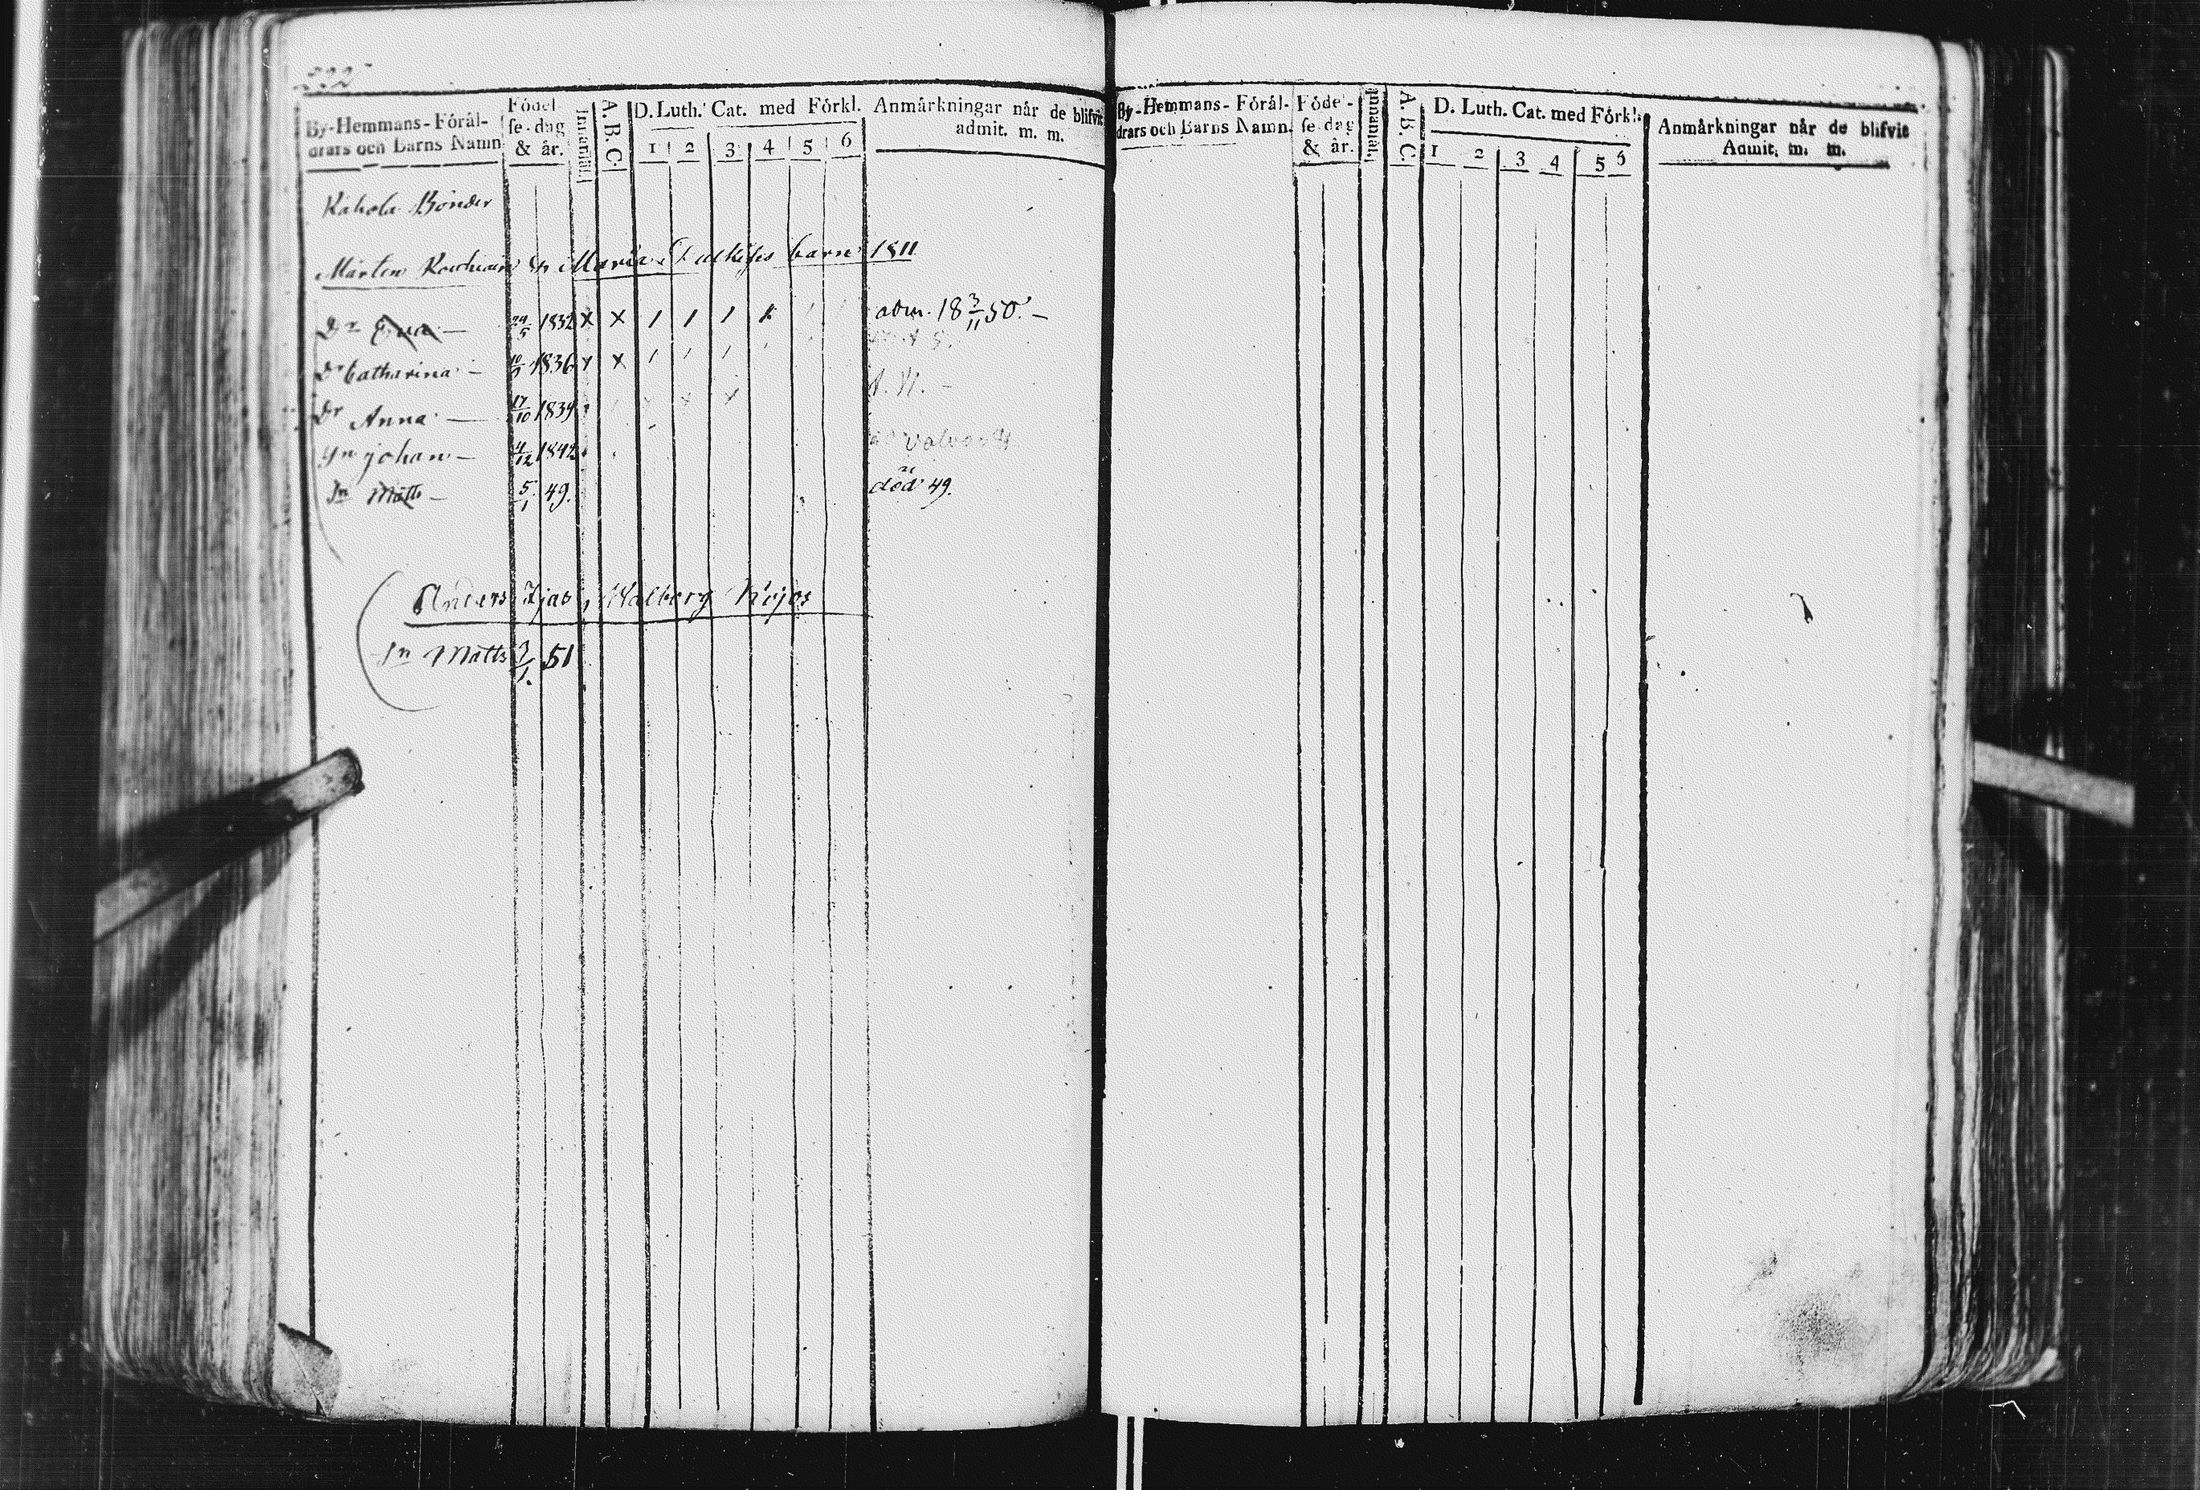 332
By-Hemmans-Förål-
drars och Barns Namn
Födel-
se-dag
& år.
Innanläs.
A. B. C.
D. Luth. Cat. med Förkl.
1 2 3 4 5 6
Anmärkningar når de blifvit
admit. m. m.
Kahola Bönder
Mårten &
Maria barn 1811
Dr Eva — 29/5 1832 X X 1 1 1 1 adm. 18 3/11 50. —
Dr Catharina — 1836 X 1 1 1
Dr Anna — 17/10 1839
Sn johan — 4/12 1842
Sn Matts — 5/1 49. död 49.
Anders Walborg
Sn Matts 3/1. 51
By-Hemmans-Förål-
drars och Barns Namn.
Föde'-
se-dag
& år.
Innanläs.
A. B. C.
D. Luth. Cat. med Förkl.
1 2 3 4 5 6
Anmärkningar når de blifvit
Admit. m. m.